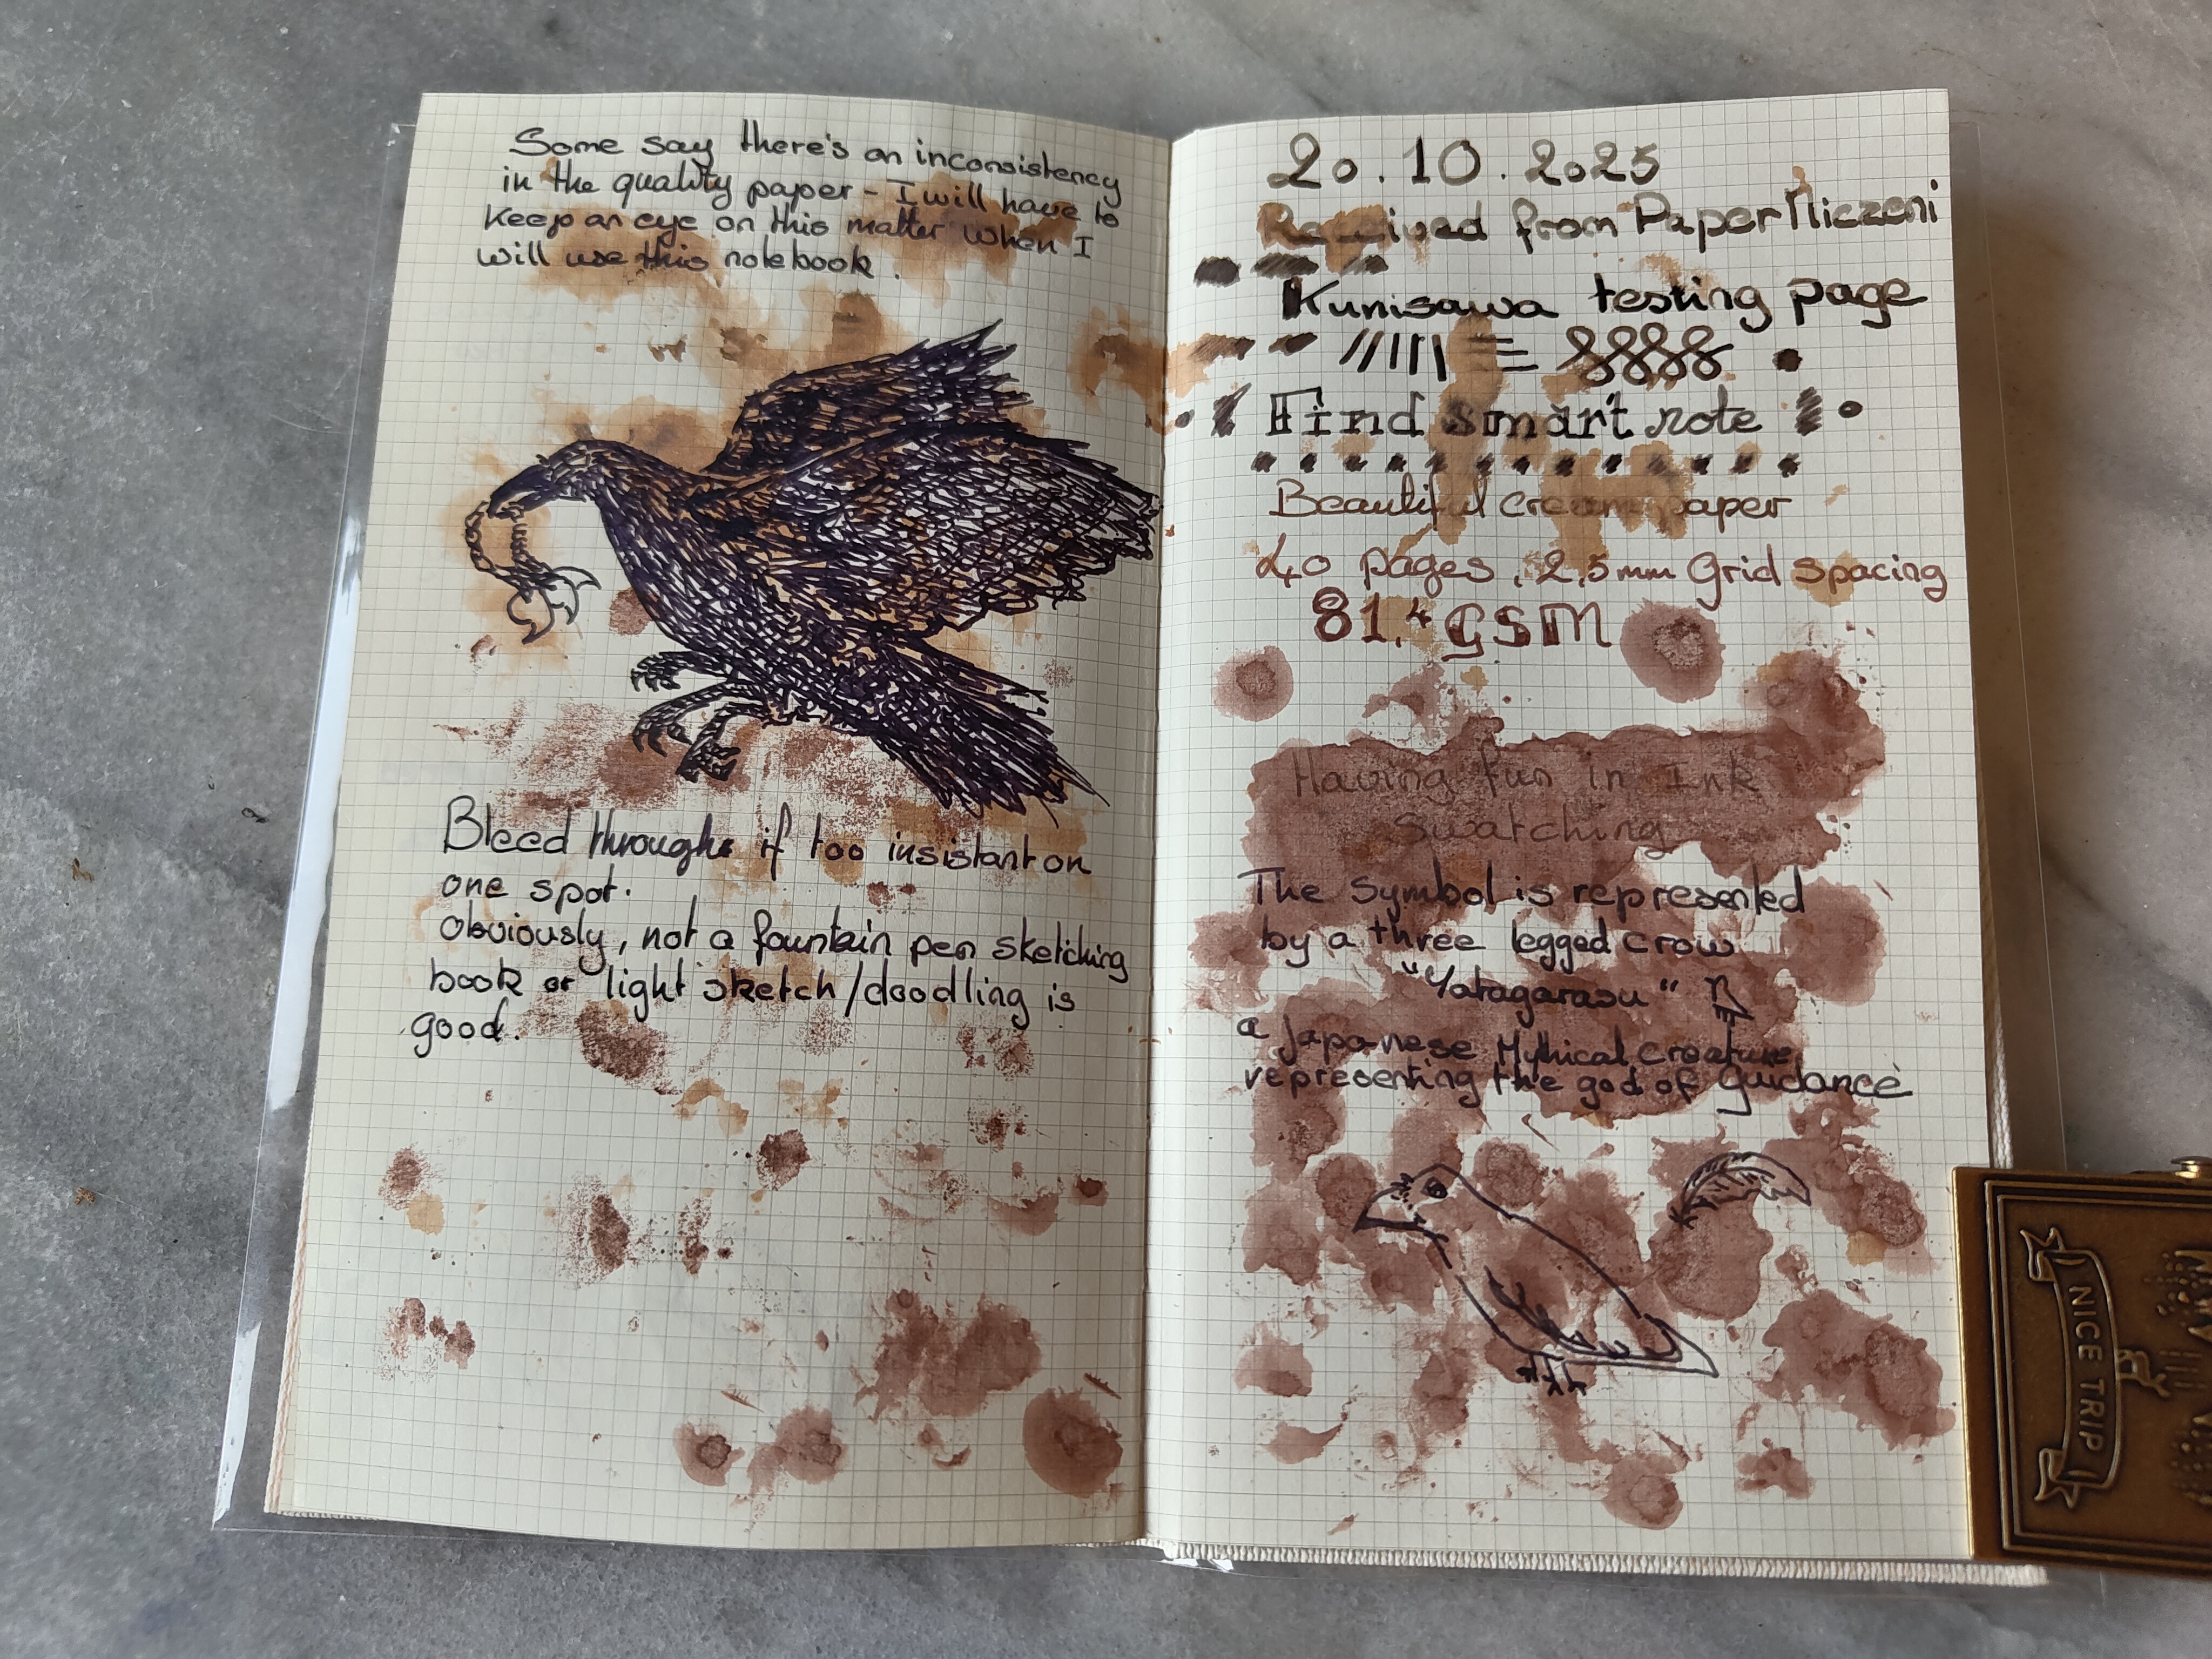 Some say there's an inconsistency
in the quality paper - I will have to
Keep an eye on this matter when I
will use this notebook.
Bleed through if too insistant on
one spot.
Obviously, not a fountain pen sketching
book or light sketch/doodling is
good.
20.10.2025
Received from Paper
Kunisawa testing page
Find smart note
Beautiful cream paper
40 pages, 2,5mm Grid spacing
81,4 GSM
Having fun in Ink
Swatching
The symbol is represented
by a three legged crow
"Yatagarasu"
a Japanese Mythical creature
representing the god of Guidance
NICE TRIP